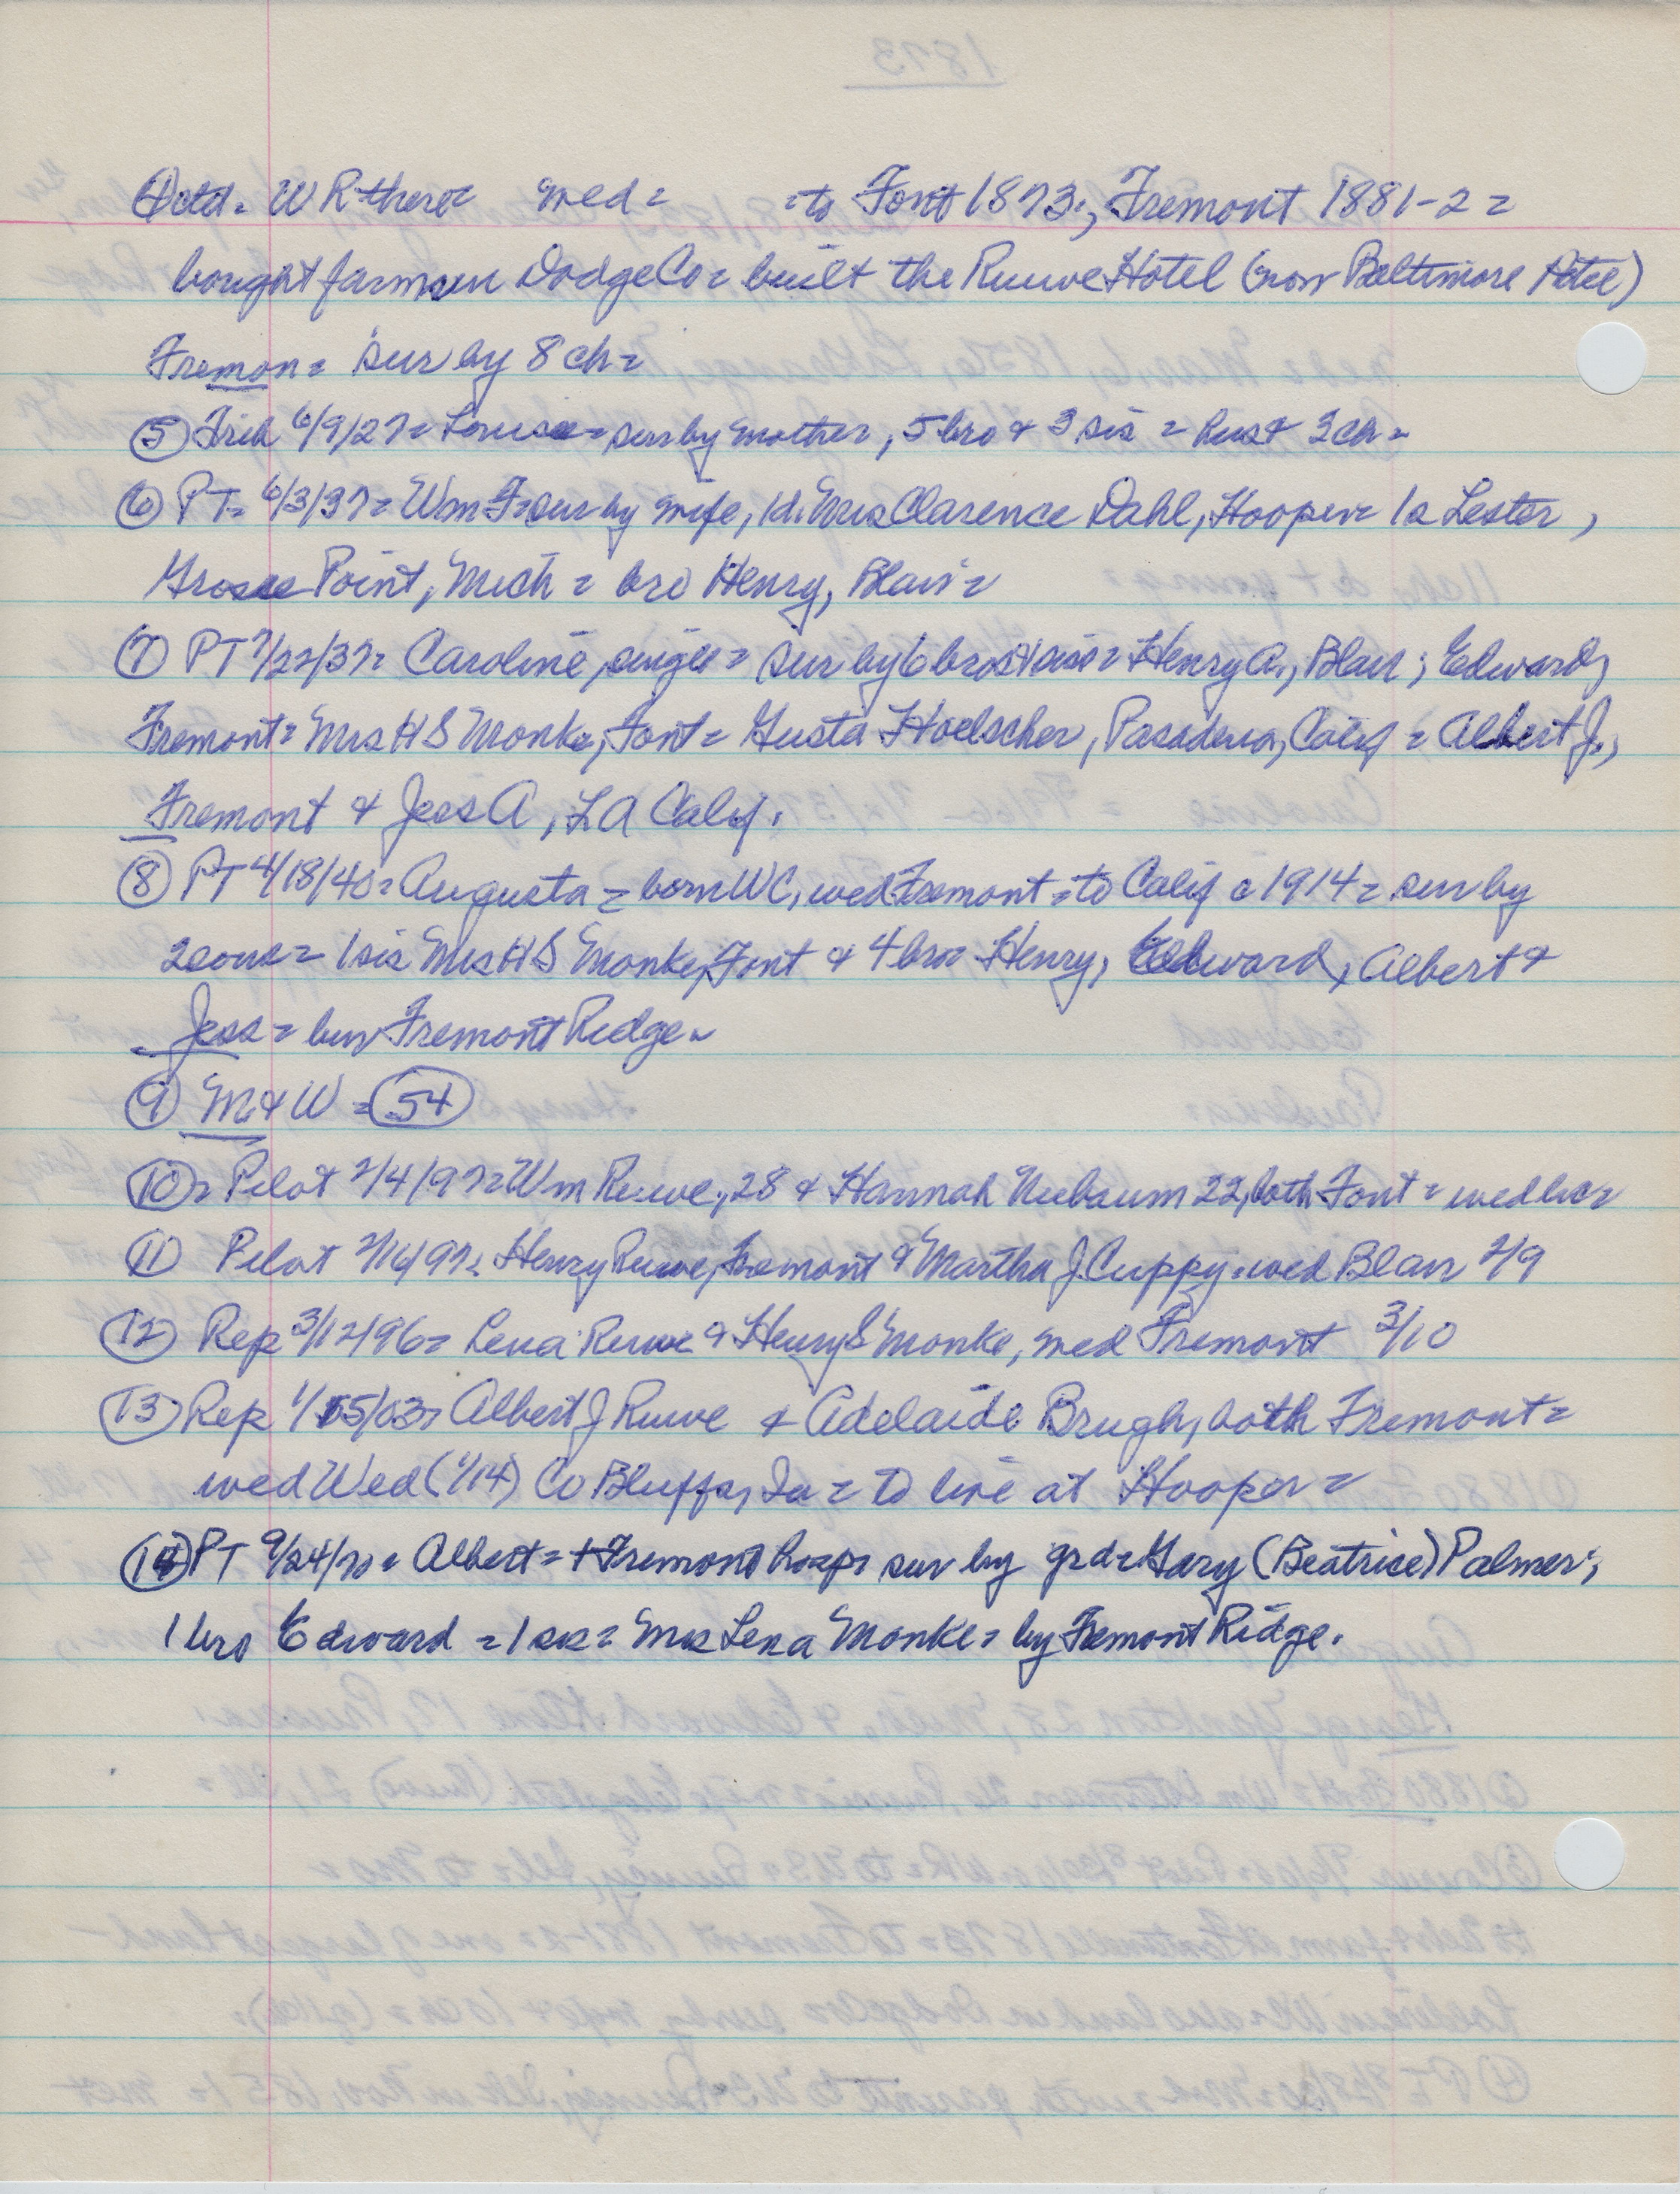 ④ctd = W R there = wed = = to Font 1873; Fremont 1881-2 =
bought farms in Dodge Co = built the Ruwe Hotel (now Baltimore Hotel)
Fremon = sur by 8 ch =
⑤ Trib 6/9/27 = Louise = sur by mother, 5 bro & 3 sis = hus & 3 ch =
⑥ PT = 6/3/37 = Wm F = sur by wife, 1d. Mrs Clarence Dahl, Hooper = 1s Lester,
Grosse Point, Mich = bro Henry, Blair =
⑦ PT 7/22/37 = Caroline, single = sur by 6 bro & sis = Henry A., Blair; Edward,
Fremont = Mrs H S Monke, Font = Gusta Hoelscher, Pasadena, Calif = Albert J.,
Fremont & Jess A, LA Calif.
⑧ PT 4/18/40 = Augusta = born WC, wed Fremont = to Calif c 1914 = sur by
2 sons = 1 sis Mrs H S Monke, Font & 4 bro = Henry, Edward, Albert &
Jess = bur Fremont Ridge =
⑨ M & W = 54
⑩ = Pilot 2/4/97 = Wm Ruwe, 28 & Hannah Niebaum 22, both Font = wed lic =
⑪ Pilot 2/16/97 = Henry Ruwe, Fremont & Martha J. Cuppy = wed Blair 2/9
⑫ Rep 3/12/96 = Lena Ruwe & Henry S Monke, wed Fremont 3/10
⑬ Rep 1/15/03 = Albert J Ruwe & Adelaide Brugh, both Fremont =
wed Wed (1/14) Co Bluffs, Ia = to live at Hooper =
⑭ PT 9/24/70 = Albert = + Fremont hosp = sur by grd = Gary (Beatrice) Palmer;
1 bro Edward = 1 sis = Mrs Lena Monke = by Fremont Ridge.